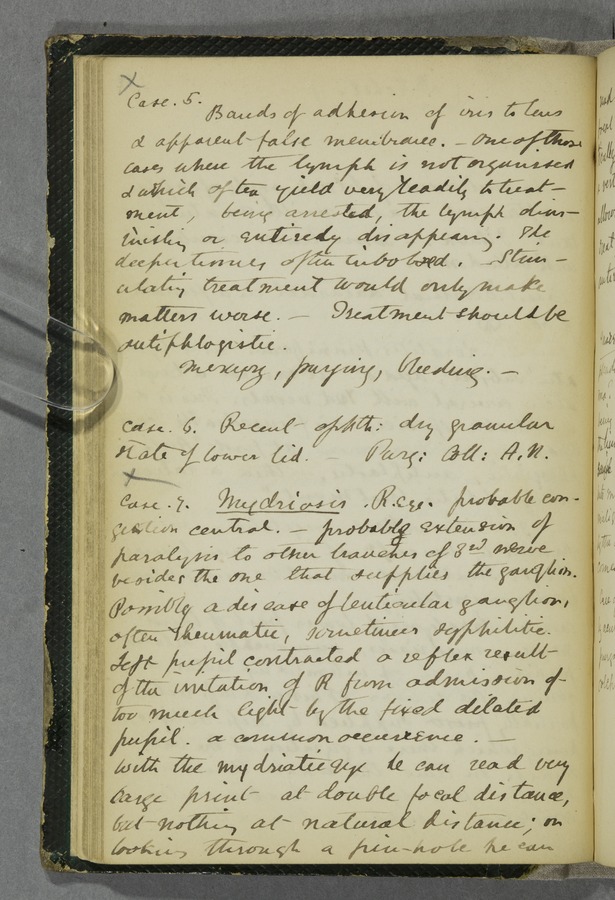 Case. 5.
Bands of adhesion of iris to lens
& apparent false membrane. - One of those
cases where the lymph is not organised
& which often yield very readily to treat-
ment, being arrested, the lymph dimi-
nishing or entirely disappearing. The
deeper tissues often involved. Stim-
ulating treatment would only make
matters worse. - Treatment should be
antiphlogistic.
mercury, purging, bleeding. -
Case. 6. Recent ophth: dry granular
state of lower lid. - Purg: Coll: A.N.
Case. 7. Mydriasis. R. eye. probable con-
gestion central. - probably extension of
paralysis to other branches of 3rd nerve
besides the one that supplies the ganglion.
Possibly a disease of lenticular ganglion,
often rheumatic, sometimes syphilitic.
Left pupil contracted a reflex result
of the irritation of R from admission of
too much light by the fixed dilated
pupil. a common occurrence. -
With the mydriatic eye he can read very
large print at double focal distance,
but nothing at natural distance; on
looking through a pin-hole he can